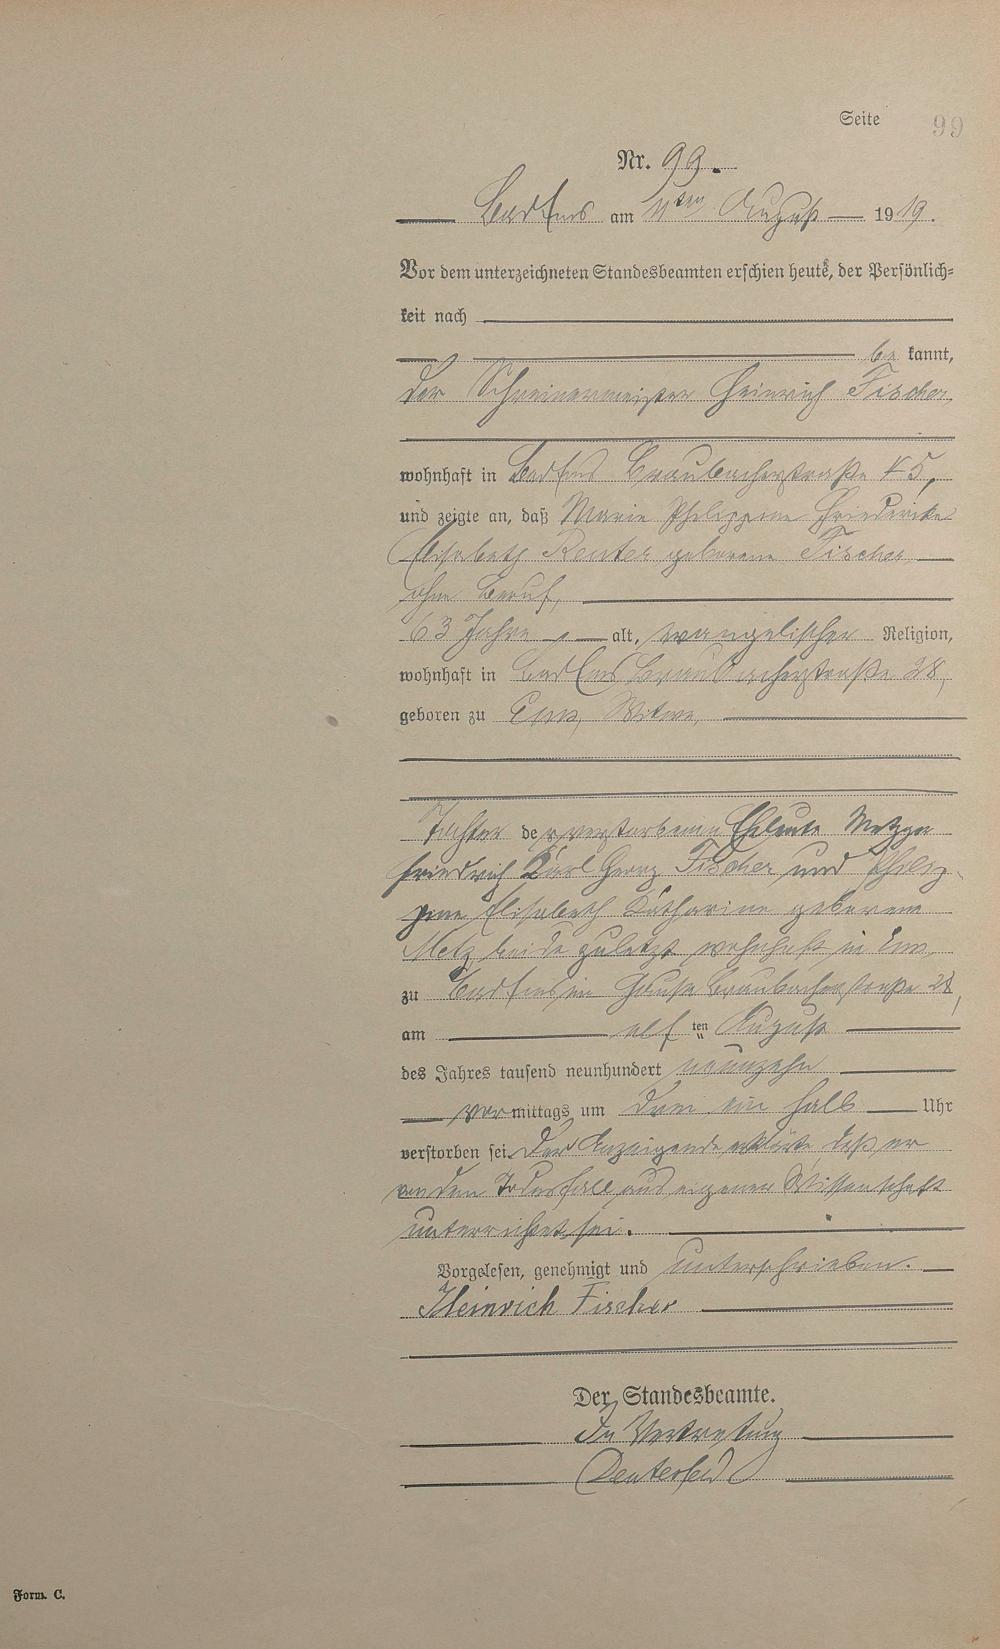 Seite 99
Nr. 99.
Bad Ems am 11ten August 1919.
Vor dem unterzeichneten Standesbeamten erschien heute, der Persönlich-
keit nach
be kannt,
der Schreinermeister Heinrich Fischer,
wohnhaft in Bad Ems Braubacherstraße 45,
und zeigte an, daß Marie Philippine Friederike
Elisabeth Reuter geborene Fischer
ohne Beruf,
63 Jahre alt, evangelischer Religion,
wohnhaft in Bad Ems Braubacherstraße 28,
geboren zu Ems, Witwe,
Tochter der verstorbenen Eheleute Metzger
Friedrich Karl Georg Fischer und Philip-
pine Elisabeth Katharine geborene
Metz beide zuletzt wohnhaft in Ems,
zu Bad Ems im Hause Braubacherstraße 28,
am elf ten August
des Jahres tausend neunhundert neunzehn
vor mittags um drei ein halb Uhr
verstorben sei. Der Anzeigende erklärte daß er
von dem Todesfall aus eigener Wissenschaft
unterrichtet sei.
Vorgelesen, genehmigt und unterschrieben.
Heinrich Fischer
Der Standesbeamte.
In Vertretung
Form. C.